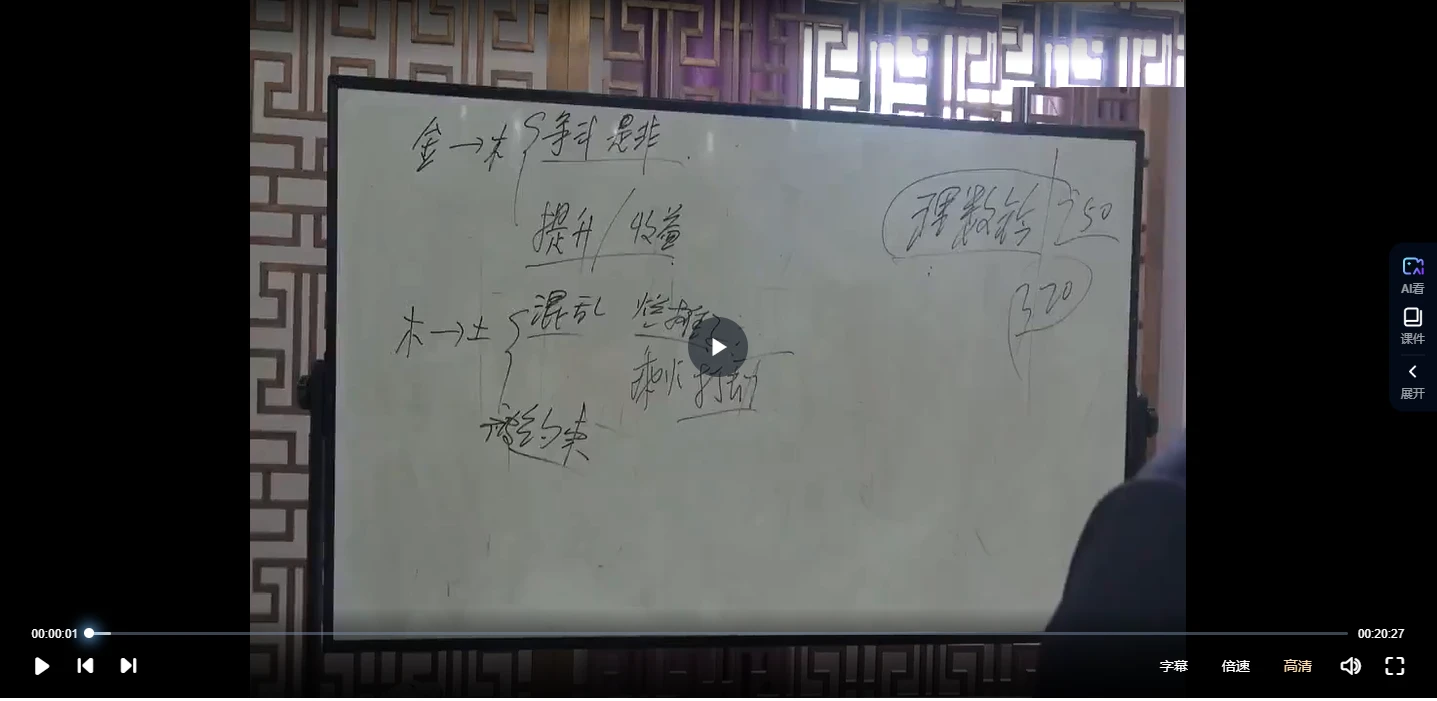 金→木{争斗 是非
提升/收益
理数诊
250
320
木→土{混乱 烂摊
乘火打劫
被约束
AI看
课件
展开
00:00:01
00:20:27
字幕
倍速
高清